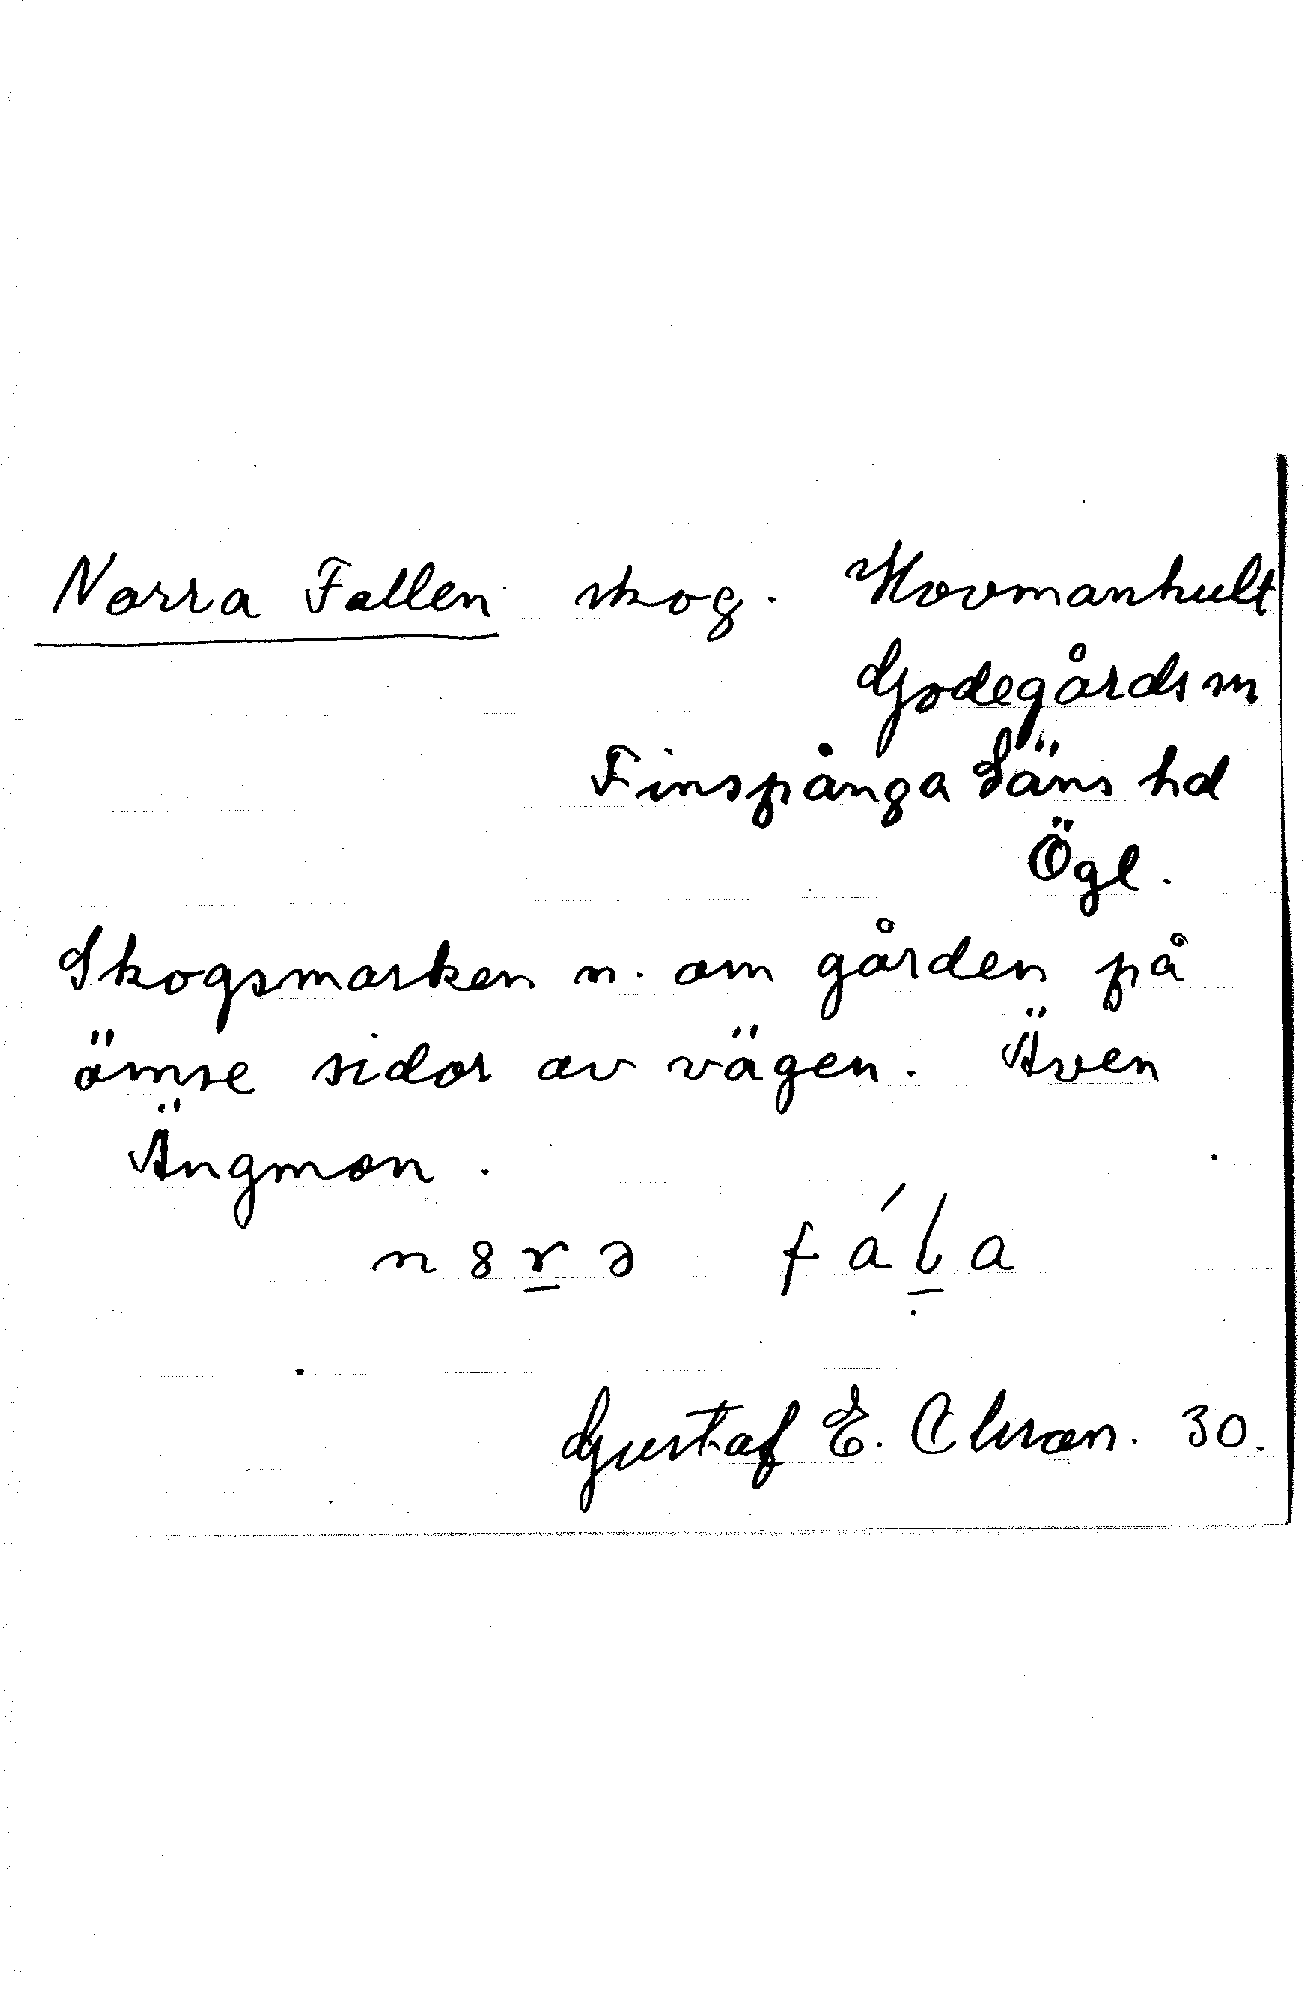 Norra Fallen skog. Hovmanhult
Godegårds sn
Finspånga Läns hd
Ögl.
Skogsmarken n. om gården på
ömse sidor av vägen. Även
Ängmon.
n8rə fála
Gustaf E. Clsson. 30.